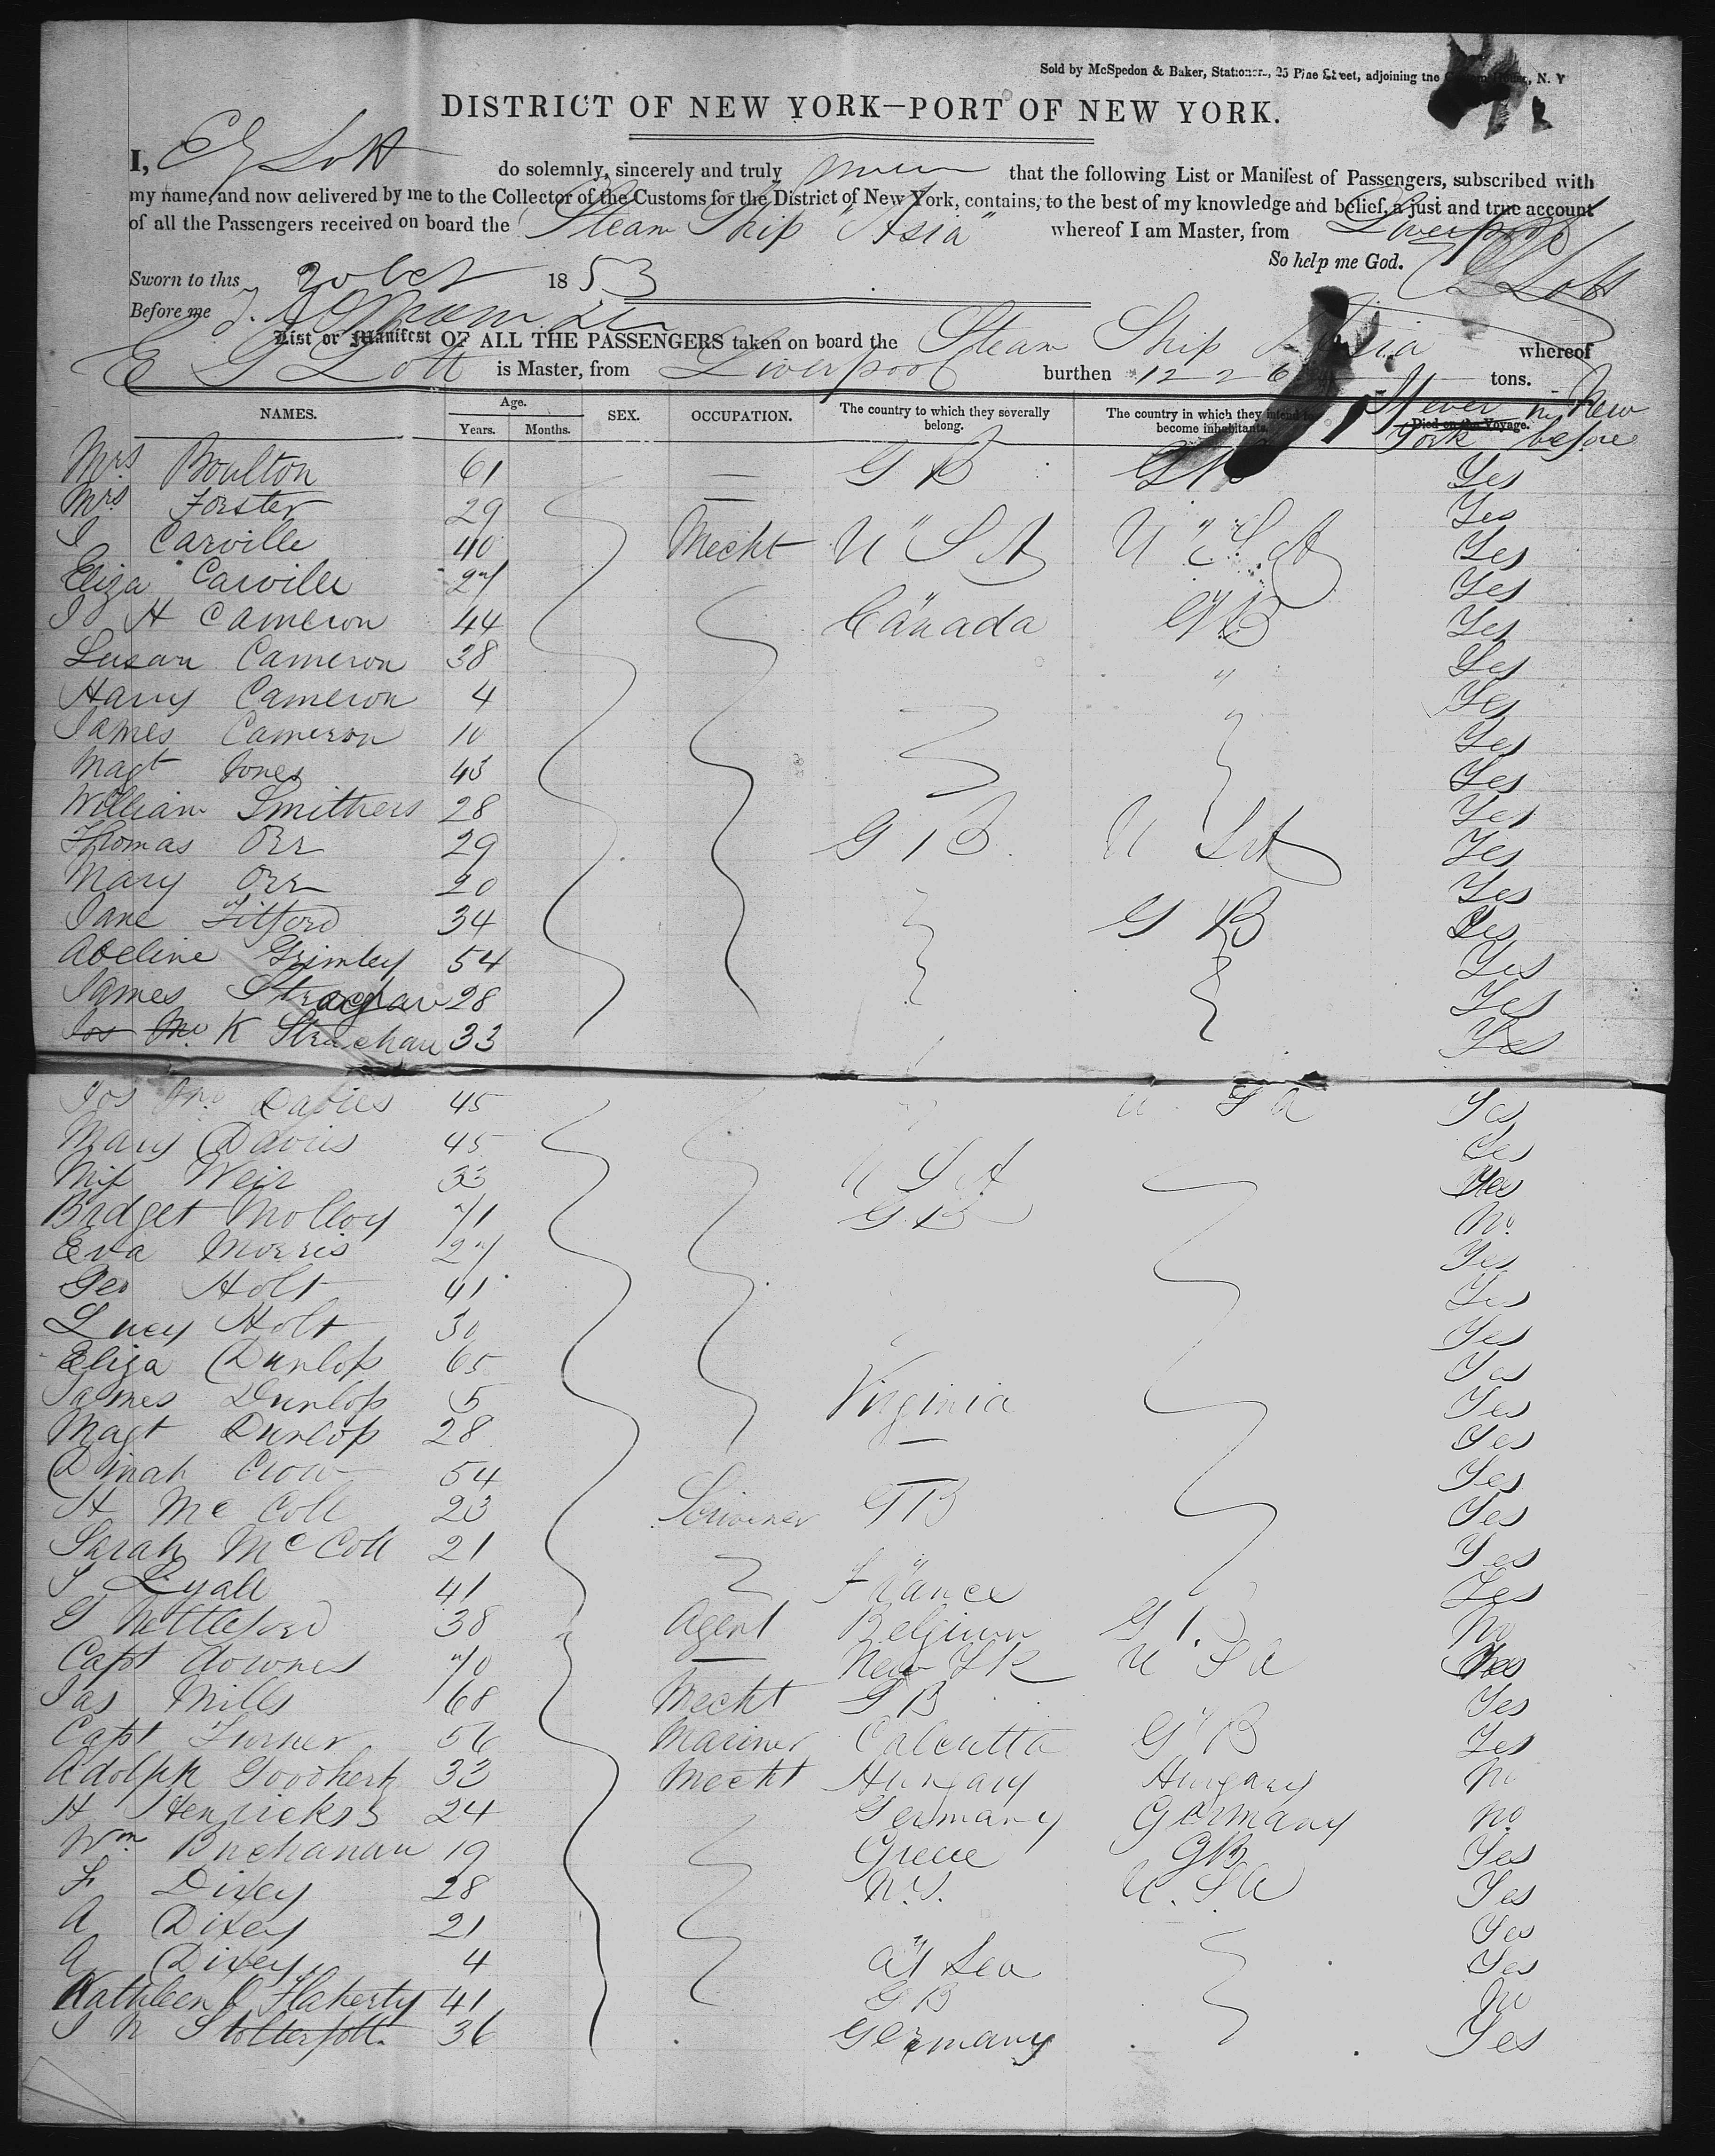 Sold by McSpedon & Baker, Stationers, 25 Pine Street, adjoining the Custom House, N. Y
DISTRICT OF NEW YORK—PORT OF NEW YORK.
I, E G Lott do solemnly, sincerely and truly swear that the following List or Manifest of Passengers, subscribed with
my name, and now delivered by me to the Collector of the Customs for the District of New York, contains, to the best of my knowledge and belief, a just and true account
of all the Passengers received on board the Steam Ship "Asia" whereof I am Master, from Liverpool
So help me God. E G Lott
Sworn to this 20 Oct 1853
Before me
List or Manifest OF ALL THE PASSENGERS taken on board the Steam Ship Asia whereof
E G Lott is Master, from Liverpool burthen 1226 tons.
NAMES. Age. Years. Months. SEX. OCCUPATION. The country to which they severally belong. The country in which they intend to become inhabitants. Died on the Voyage. If ever in New York before
Mrs Boulton 61 — G B G B Yes
Mrs Forster 29 — " " Yes
J Carville 40 Mecht U S A U S A Yes
Eliza Carville 27 " " Yes
J H Cameron 44 Canada G B Yes
Susan Cameron 38 " Yes
Harry Cameron 4 Yes
James Cameron 10 Yes
Magt Jones 43 Yes
William Smithers 28 Yes
Thomas Orr 29 G B U S A Yes
Mary Orr 20 Yes
Jane Titford 34 G B Yes
Adeline Grimley 54 Yes
James Strachan 28 Yes
Jos Mc K Strachan 33 Yes
Jos Davies 45 U S A Yes
Mary Davies 45 Yes
Miss Weir 33 U S A Yes
Bridget Molloy 71 G B No
Eva Morris 27 Yes
Geo Holt 41 Yes
Lucy Holt 30 Yes
Eliza Dunlop 65 Yes
James Dunlop 5 Virginia Yes
Magt Dunlop 28 — Yes
Dinah Crow 54 — Yes
H Mc Coll 23 Scrivener G B Yes
Sarah McColl 21 " Yes
J Lyall 41 France Yes
G Nettleford 38 Agent Belgium G B No
Capt Downes 70 — New Yk U S A Yes
Jas Mills 68 Mecht G B " Yes
Capt Turner 56 Mariner Calcutta G B Yes
Adolph 33 Mecht Hungary Hungary No
H Henricks 24 Germany Germany No
Wm Buchanan 19 Greece GB Yes
F Dixey 28 N.Y. U.S A Yes
A Dixey 21 " Yes
A Dixey 4 At Sea Yes
Kathleen O Flaherty 41 G B No
J N Stolterfoht 36 Germany Yes